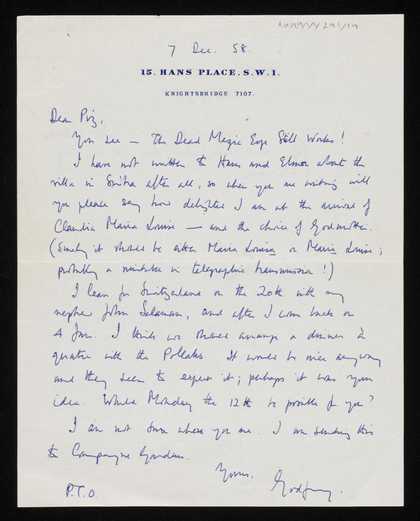 7 Dec. 58.
15. HANS PLACE. S.W.1.
KNIGHTSBRIDGE 7107.
Dear Piz,
You see — The Dead Magic Eye Still Works!
I have not written to Hans and Elinor about the
villa in after all, so when you are writing will
you please say how delighted I am at the arrival of
Claudia Maria Louise — and the choice of Godmother.
(Surely it should be either Maria Louisa or Marie Louise;
probably a mistake in telegraphic transmission!)
I leave for Switzerland on the 20th with my
nephew John Salaman, and after I come back on
4 Jan. I think we should arrange a dinner à
quatre with the Pollaks. It would be nice anyway
and they seem to expect it; perhaps it was your
idea. Would Monday the 12th be possible for you?
I am not sure where you are. I am sending this
to Compayne Gardens.
Yours,
Godfrey.
P.T.O.